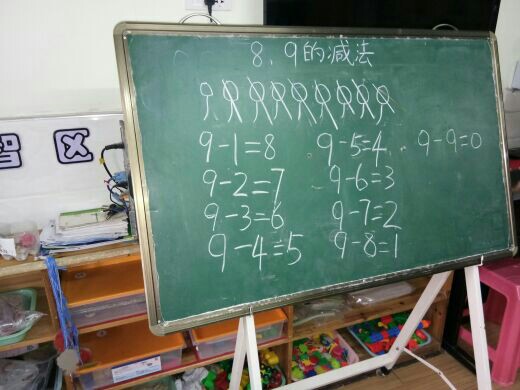 8、9的减法
9-1=8 9-5=4 9-9=0
9-2=7 9-6=3
9-3=6 9-7=2
9-4=5 9-8=1
智 区